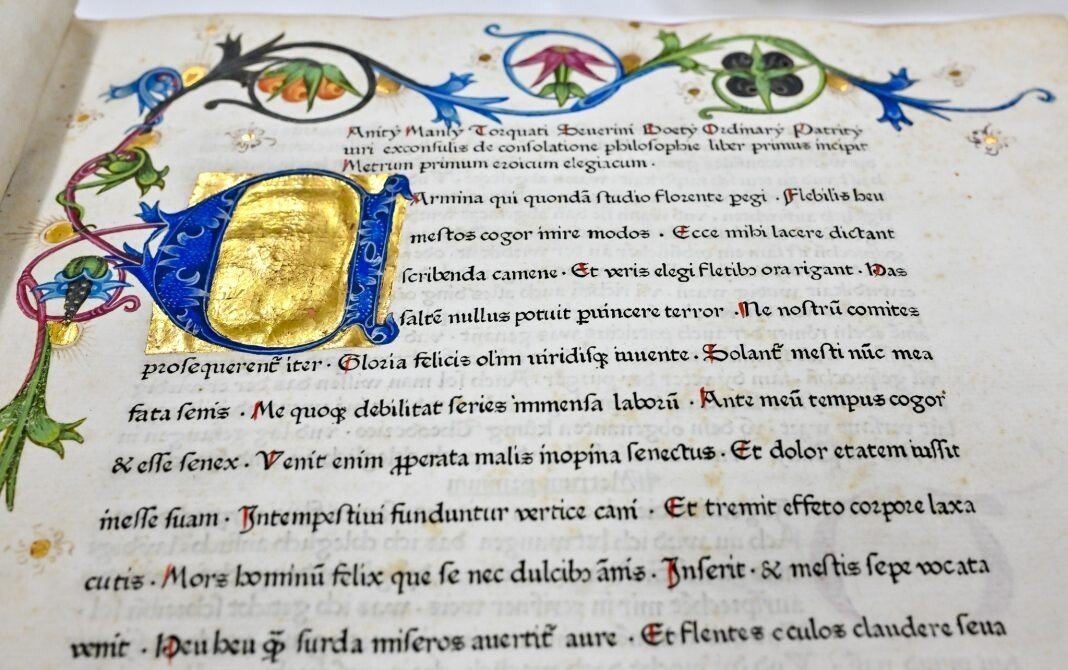 Anitÿ Manlÿ Torquati Seuerini Boetÿ Ordinarÿ Patritÿ
uiri exconsulis de consolatione philosophie liber primus incipit
Metrum primum eroicum elegiacum ·
CArmina qui quondā ſtudio florente pegi · Flebilis heu
meſtos cogor inire modos · Ecce mihi lacere dictant
ſcribenda camene · Et veris elegi fletibꝫ ora rigant · Has
ſaltē nullus potuit ꝑuincere terror · Ne noſtrū comites
proſequerent᷑ iter · Gloria felicis olim uiridiſqꝫ iuuente · Solant᷑ meſti nūc mea
fata ſenis · Me quoqꝫ debilitat ſeries immenſa laborū · Ante meū tempus cogor
& eſſe ſenex · Venit enim ꝓperata malis inopina ſenectus · Et dolor etatem iuſſit
ineſſe ſuam · Intempeſtiui funduntur vertice cani · Et tremit effeto corpore laxa
cutis · Mors hominū felix que ſe nec dulcibꝫ ānis · Inſerit · & meſtis ſepe vocata
venit · Heu heu qᷓ ſurda miſeros auertit᷑ aure · Et flentes oculos claudere ſeua